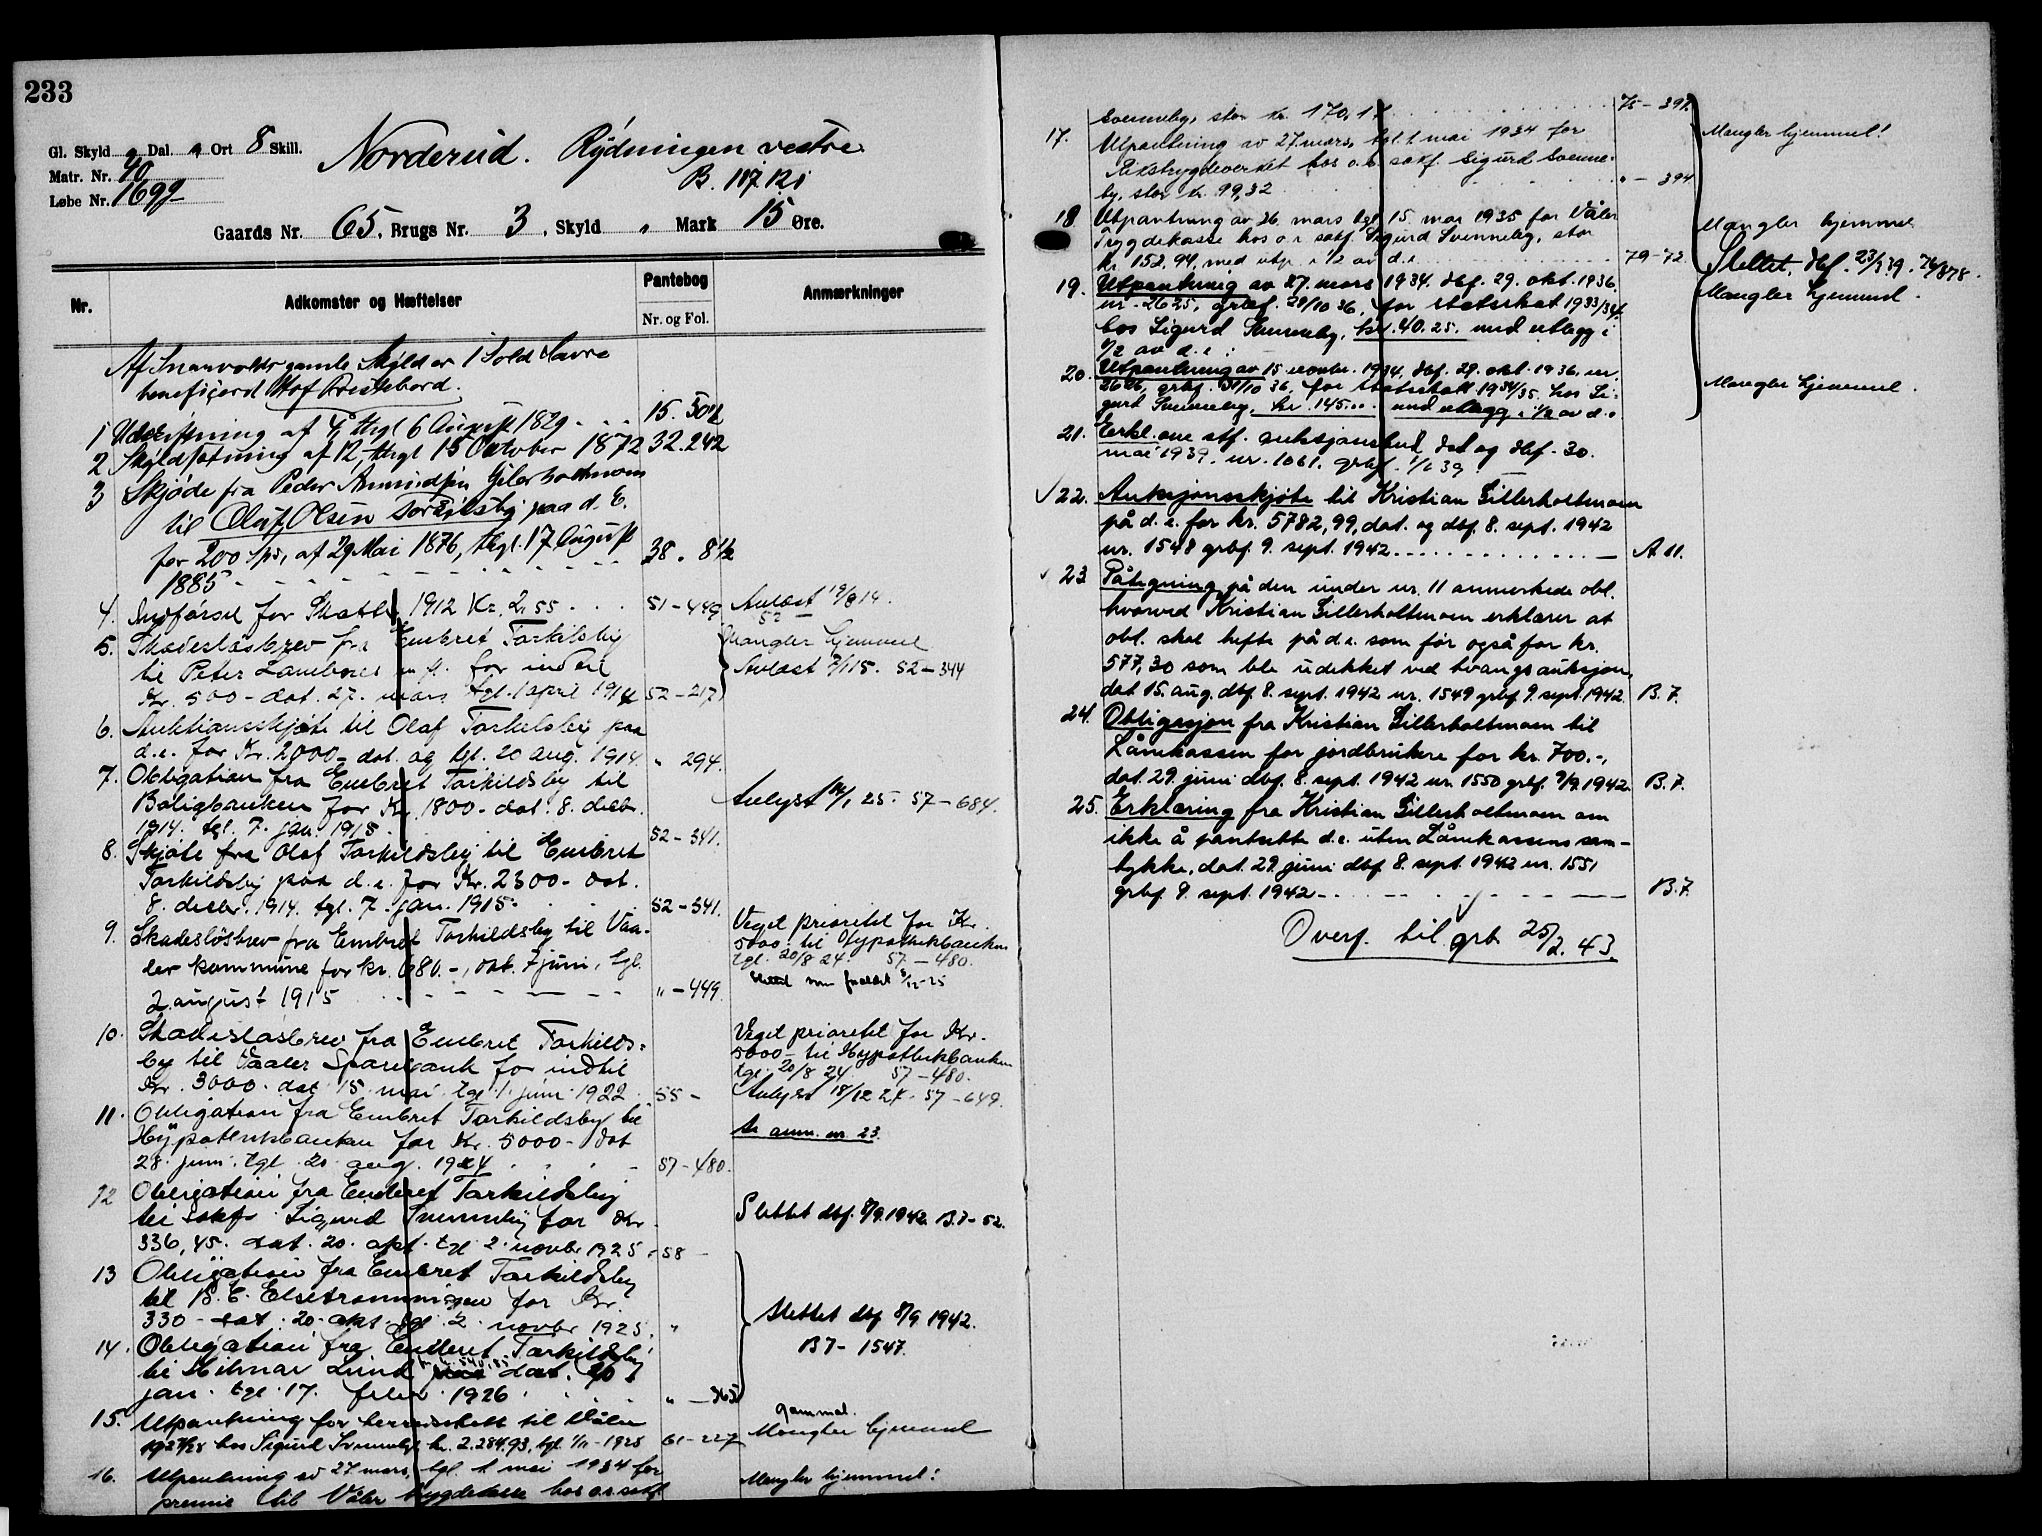 233
Gl. Skyld " Dal. " Ort 8 Skill.
Matr. Nr. 40
Løbe Nr. 169g
Norderud. Rydningen vestre
B. 117 121
Gaards Nr. 65, Brugs Nr. 3, Skyld " Mark 15 Øre.
Nr. Adkomster og Hæftelser Pantebog Anmærkninger
Nr. og Fol.
gamle Skyld er 1 Sold Havre
beneficeret Hof Præstebord.
1 Udskiftning af thgl 6 August 1829 . . . 15. 501
2 Skyldsætning af 12, thgl 15 October 1872 32.242
3 Skjøde fra Peder Amundsen Gilerholtmoen
til Olaf Olsen Torkilsby paa d. E.
for 200 Spd, af 29 Mai 1876, thgl. 17 August
1885 - - - - 38. 81
4. Indførsel for Skatter 1912 Kr. 2,55 . . . 51-449 Avlæst 19/8 14.
52
5. Skadesløsbrev fra Embret Torkilsby Mangler hjemmel
til Peter Lamberes m. fl. for indtil Avlæst 7/1 15. 52-344
Kr. 500- dat. 27. mars tgl. 1 april 1914 52-217
6. Auktionsskjøte til Olaf Torkelsby paa
d.e. for Kr. 2000- dat. og tgl. 20 aug. 1914 " 294.
7. Obligation fra Embret Torkildsby til
Boligbanken for Kr. 1800- dat. 8. decbr. Avlyst 14/1 25. 57-684.
1914. tgl. 7. jan. 1915. 52-341.
8. Skjøte fra Olaf Torkildsby til Embret
Torkildsby paa d.e. for Kr. 2300- dat.
8. decbr. 1914. tgl. 7. jan. 1915. 52-341.
9. Skadesløsbrev fra Embret Torkildsby til Vaa- Veget prioritet for Kr.
ler kommune for kr. 680.-, dat. 7 juni, tgl. 5000- til Hypothekbanken
tgl. 20/8 24. 57-480.
2 august 1915 - - - "-449. Slettet som forældet 5/12-25
10. Skadesløsbrev fra Embret Torkilds- Veget prioritet for Kr.
by til Vaaler Sparebank for indtil 5000- til Hypothekbanken
tgl. 20/8 24. 57-480.
Kr. 3000- dat 15. mai. tgl 1. juni 1922. 55- Avlyst 18/12 24. 57-649.
11. Obligation fra Embret Torkildsby til
Hypothekbanken for Kr. 5000- dat Se anm. nr. 23.
28. juni. tgl. 20. aug. 1924 57-480.
12 Obligation fra Embret Torkildsby
til sakf. Sigurd Svenneby for Kr. Slettet dbf. 8/9.1942. B.7-52.
336,45. dat. 20. okt. tgl 2. novbr 1925. 58-
13 Obligation fra Embret Torkildsby
til B. E. Elsetrønningen for Kr.
330- dat. 20. okt. tgl. 2. novbr 1925. " Slettet dbf 8/9 1942.
B7-1547.
14. Obligation fra Embret Torkildsby
til Hilmar Lund kr. 540,85 dat. 20
jan. tgl. 17. febr. 1926 "-365
15. Utpantning for herredsskatt til Våler gammel.
1927/28 hos Sigurd Svenneby kr. 2.284.93, tgl. 1/11-1928 61-227 Mangler hjemmel
16. Utpantning av 27 mars, tgl. 1. mai 1934 for Mangler hjemmel!
premie til Våler trygdekasse hos o.r.sakf.
Svenneby, stor kr. 170,17 . . . 75-394.
17. Utpantning av 27 mars, tgl. 1. mai 1934 for Mangler hjemmel!
Rikstrygdeverket hos o.r. sakf. Sigurd Svenne-
by, stor kr. 99,32 . . . "-394
18 Utpantning av 26. mars tgl. 15. mai 1935 for Våler Mangler hjemmel
Trygdekasse hos o.r. sakf. Sigurd Svenneby, stor
kr. 152.94, med utp. i 1/2 av d.e. . . . 79-72. Slettet, dbf. 23/3 39. 76/878.
19. Utpantning av 27. mars 1934. dbf. 29. okt. 1936. Mangler hjemmel.
nr. 2625, grbf. 29/10 36, for statsskat 1933/34.
hos Sigurd Svenneby, kr. 40.25. med utlegg i
1/2 av d.e.
20. Utpantning av 15 novbr. 1934, dbf. 29. okt. 1936. nr. Mangler hjemmel.
2626, grbf. 31/10 36, for statsskatt 1934/35. hos Si-
gurd Svenneby, kr. 145... med utlegg i 1/2 av d.e
21. Erkl. om stf. auksjonsbud, dat og dbf. 30.
mai 1939. nr. 1061. grbf. 1/6 39.
✓22. Auksjonsskjøte til Kristian Gillerholtmoen
på d.e. for kr. 5782,99, dat. og dbf. 8. sept. 1942
nr. 1548 grbf. 9. sept. 1942 . . . A 11.
✓23. Påtegning på den under nr. 11 anmerkede obl.
hvorved Kristian Gillerholtmoen erklærer at
obl. skal hefte på d.e. som før også for kr.
577,30 som ble udekket ved tvangsauksjon,
dat 15. aug. dbf. 8. sept. 1942 nr. 1549 grbf. 9. sept. 1942 B.7.
24. Obligasjon fra Kristian Gillerholtmoen til
Lånekassen for jordbrukere for kr. 700.-,
dat. 29. juni dbf. 8. sept. 1942 nr. 1550 grbf. 9/9.1942. B.7.
25. Erklæring fra Kristian Gillerholtmoen om
ikke å pantsette d.e. uten Lånekassens sam-
tykke, dat. 29. juni dbf 8. sept. 1942 nr. 1551
grbf 9. sept. 1942 - . . . B.7.
Overf. til grb 25/2. 43.